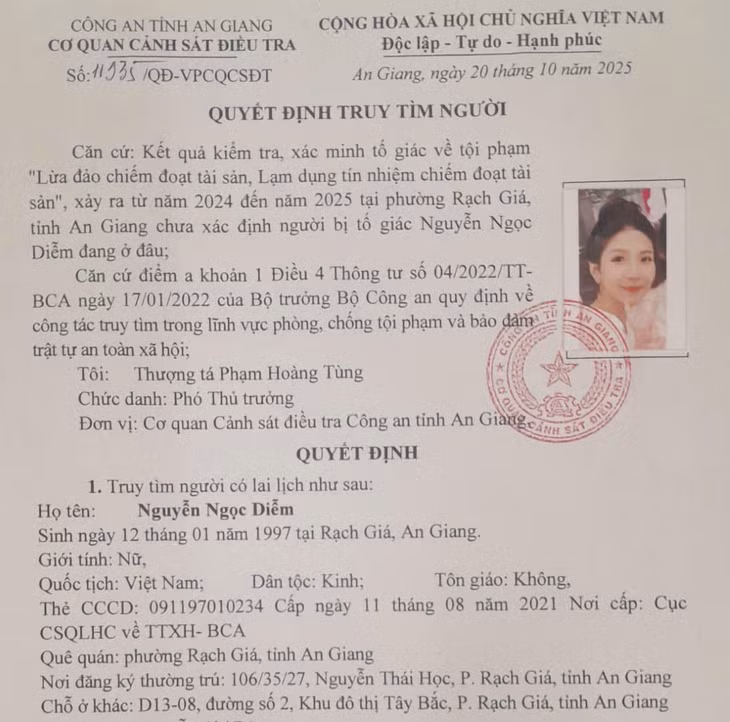 CÔNG AN TỈNH AN GIANG
CƠ QUAN CẢNH SÁT ĐIỀU TRA
Số: 11935 /QĐ-VPCQCSĐT
CỘNG HÒA XÃ HỘI CHỦ NGHĨA VIỆT NAM
Độc lập - Tự do - Hạnh phúc
An Giang, ngày 20 tháng 10 năm 2025
QUYẾT ĐỊNH TRUY TÌM NGƯỜI
Căn cứ: Kết quả kiểm tra, xác minh tố giác về tội phạm
"Lừa đảo chiếm đoạt tài sản, Lạm dụng tín nhiệm chiếm đoạt tài
sản", xảy ra từ năm 2024 đến năm 2025 tại phường Rạch Giá,
tỉnh An Giang chưa xác định người bị tố giác Nguyễn Ngọc
Diễm đang ở đâu;
Căn cứ điểm a khoản 1 Điều 4 Thông tư số 04/2022/TT-
BCA ngày 17/01/2022 của Bộ trưởng Bộ Công an quy định về
công tác truy tìm trong lĩnh vực phòng, chống tội phạm và bảo đảm
trật tự an toàn xã hội;
Tôi: Thượng tá Phạm Hoàng Tùng
Chức danh: Phó Thủ trưởng
Đơn vị: Cơ quan Cảnh sát điều tra Công an tỉnh An Giang.
CÔNG AN TỈNH AN GIANG
CƠ QUAN CẢNH SÁT ĐIỀU TRA
QUYẾT ĐỊNH
1. Truy tìm người có lai lịch như sau:
Họ tên: Nguyễn Ngọc Diễm
Sinh ngày 12 tháng 01 năm 1997 tại Rạch Giá, An Giang.
Giới tính: Nữ,
Quốc tịch: Việt Nam; Dân tộc: Kinh; Tôn giáo: Không,
Thẻ CCCD: 091197010234 Cấp ngày 11 tháng 08 năm 2021 Nơi cấp: Cục
CSQLHC về TTXH- BCA
Quê quán: phường Rạch Giá, tỉnh An Giang
Nơi đăng ký thường trú: 106/35/27, Nguyễn Thái Học, P. Rạch Giá, tỉnh An Giang
Chỗ ở khác: D13-08, đường số 2, Khu đô thị Tây Bắc, P. Rạch Giá, tỉnh An Giang